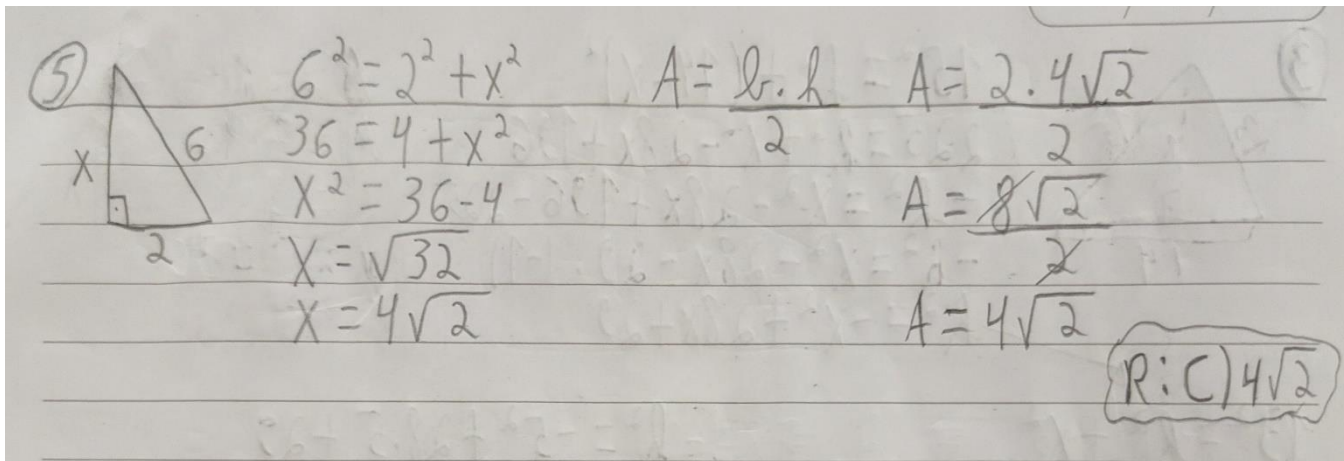 5
x
6
2
6² = 2² + x²
36 = 4 + x²
x² = 36 - 4
x = √32
x = 4√2
A = b.h/2 - A = 2.4√2/2
A = 8√2/2
A = 4√2
R: C) 4√2